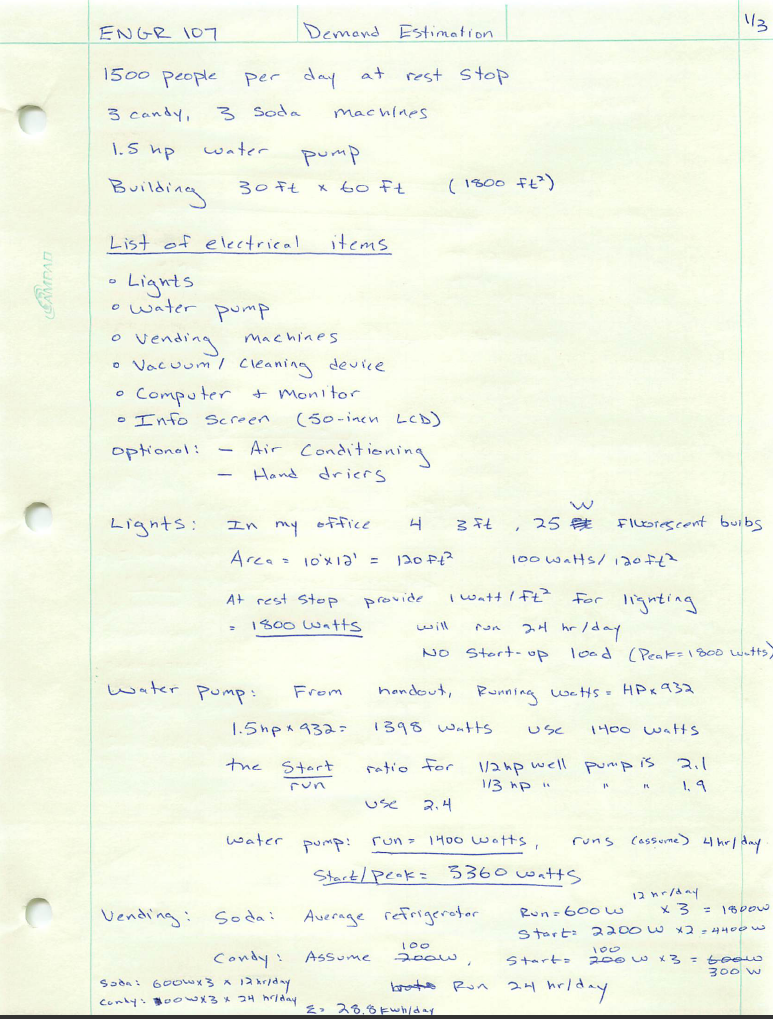 ENGR 107 Demand Estimation 1/3
1500 people per day at rest stop
3 candy, 3 soda machines
1.5 hp water pump
Building 30 ft x 60 ft (1800 ft²)
List of electrical items
o Lights
o water pump
o Vending machines
o Vacuum / cleaning device
o Computer + Monitor
o Info Screen (50-inch LCD)
optional: — Air Conditioning
— Hand driers
Lights: In my office 4 3 ft, 25 W fluorescent bulbs
Area = 10'x12' = 120 ft² 100 watts/120 ft²
At rest stop provide 1 watt/ft² for lighting
= 1800 watts will run 24 hr/day
NO start-up load (Peak=1800 watts)
Water pump: From handout, Running watts = HP x 932
1.5hp x 932 = 1398 watts use 1400 watts
the Start/run ratio for 1/2 hp well pump is 2.1
1/3 hp " " " 1.9
use 2.4
water pump: run = 1400 watts, runs (assume) 4 hr/day
Start/Peak = 3360 watts
12 hr/day
Vending: Soda: Average refrigerator Run=600W x 3 = 1800W
Start= 2200 W x2 = 4400 W
Candy: Assume 100 200W, Start= 100 200 W x3 = 600W
300 W
Soda: 600W x 3 x 12 hr/day Run 24 hr/day
Candy: 100W x 3 x 24 hr/day Σ= 28.8 kwh/day